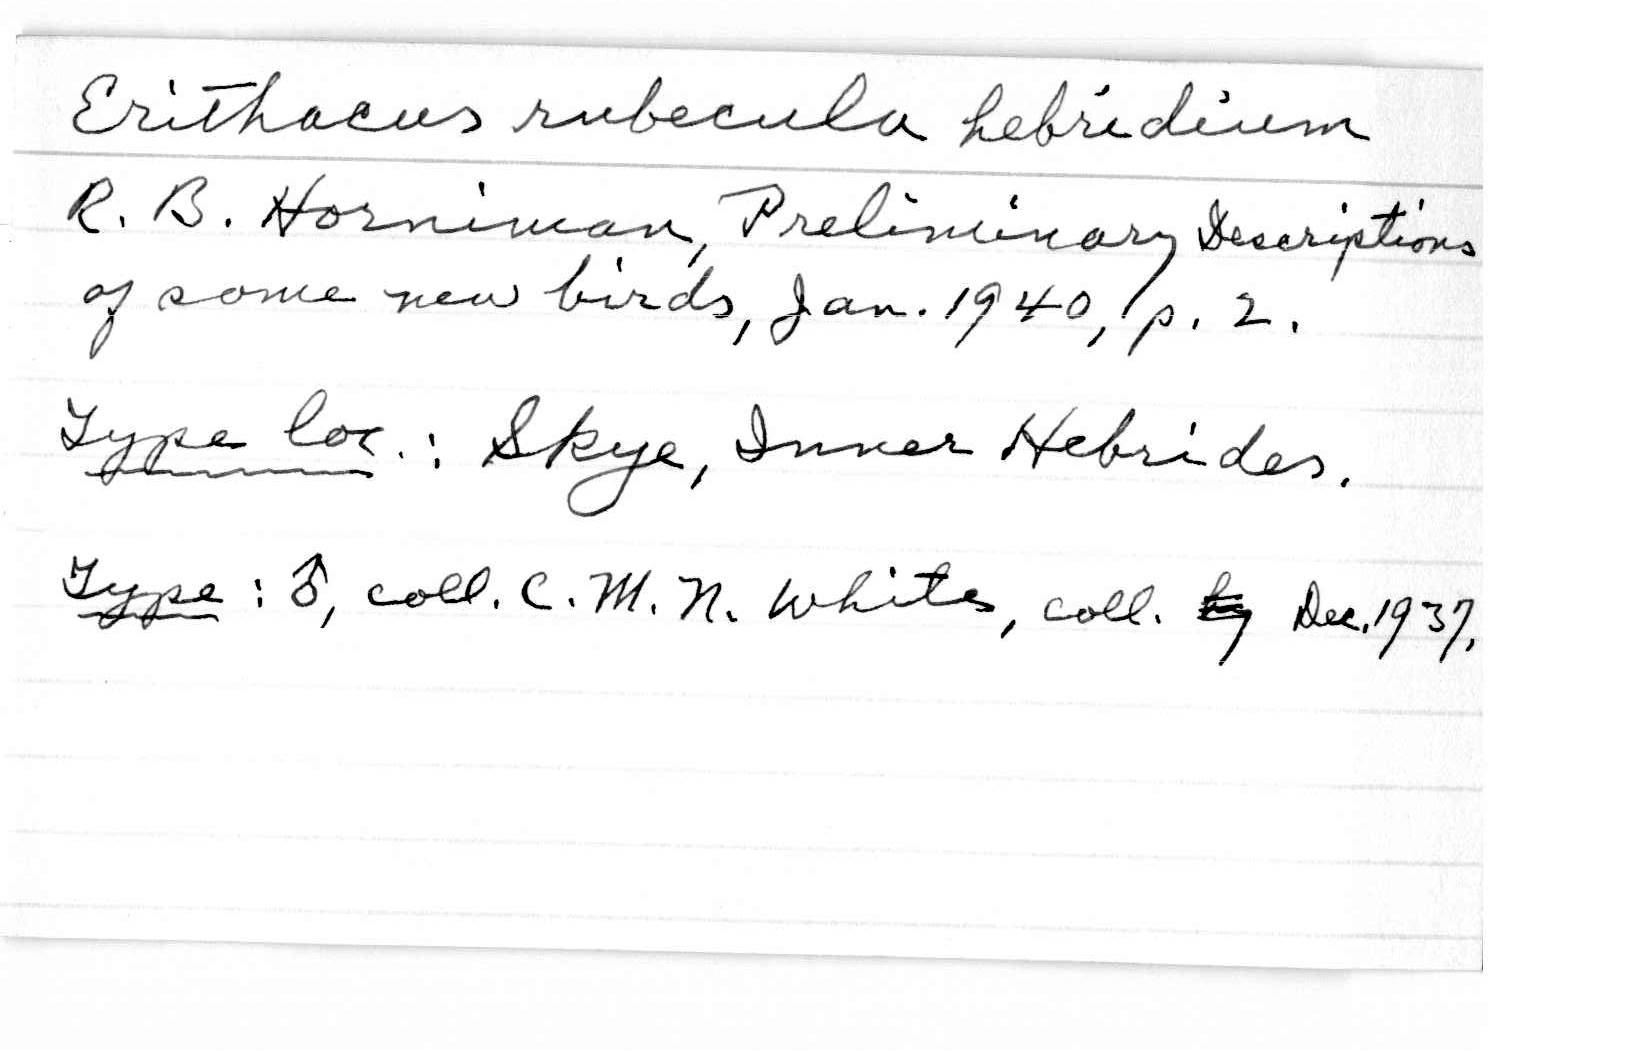 Erithacus rubecula hebridium
R. B. Horniman, Preliminary Descriptions
of some new birds, Jan. 1940, p. 2.
Type loc.: Skye, Inner Hebrides.
Type: ♂, coll. C. M. N. White, coll. by Dec. 1937.